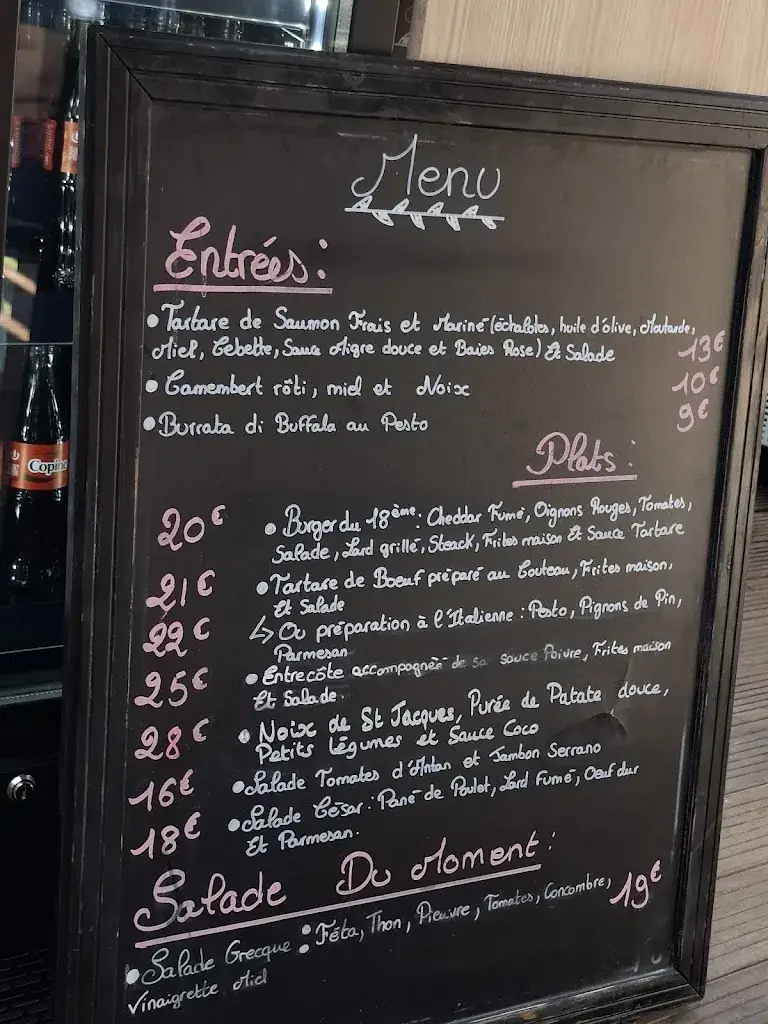 Menu
Entrées:
• Tartare de Saumon Frais et Mariné (échalotes, huile d'olive, Moutarde,
Miel, Cebette, Sauce Aigre douce et Baies Rose) Et Salade 13€
• Camembert rôti, miel et Noix 10€
• Burrata di Buffala au Pesto 9€
Plats:
20€ • Burger du 18ème: Cheddar Fumé, Oignons Rouges, Tomates,
Salade, Lard grillé, Steack, Frites maison Et Sauce Tartare
21€ • Tartare de Boeuf préparé au Couteau, Frites maison,
Et Salade
22€ ↳ Ou préparation à l'Italienne: Pesto, Pignons de Pin,
Parmesan
25€ • Entrecôte accompagnée de sa sauce Poivre, Frites maison
Et Salade.
28€ • Noix de St Jacques, Purée de Patate douce,
Petits légumes et Sauce Coco
16€ • Salade Tomates d'Antan et Jambon Serrano
18€ • Salade César: Pané de Poulet, Lard Fumé, Oeuf dur
Et Parmesan.
Salade Du Moment:
• Salade Grecque: Féta, Thon, Pieuvre, Tomates, Concombre, 19€
Vinaigrette Miel
Copine